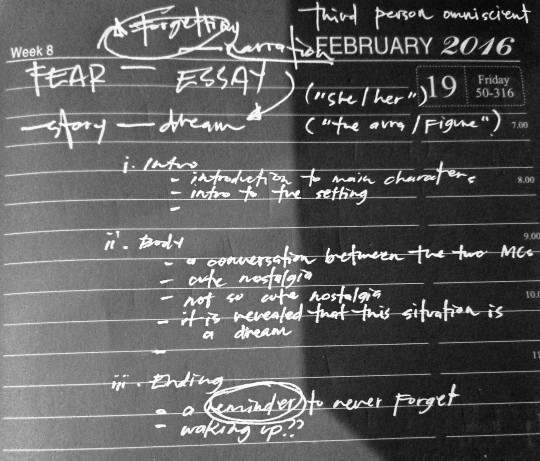 Forgetting
third person omniscient
narration
Week 8
FEBRUARY 2016
FEAR — ESSAY
("she/her")
19 Friday
50-316
story — dream
("the aura/Figure")
7.00
i. Intro
- introduction to main characters
8.00
- intro to the setting
-
9.00
ii. Body
- a conversation between the two MCs
- cute nostalgia
- not so cute nostalgia
10.0
- it is revealed that this situation is
a dream
-
11
iii. Ending
- a reminder to never forget
- waking up??